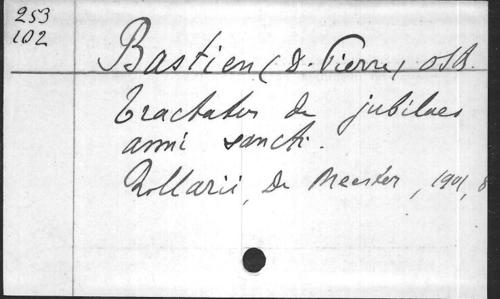 253
102
Bastien (D. Pierre) OSB.
Tractatus de jubilaeo
anni sancti.
Rollarii, De Meester, 1901, 8